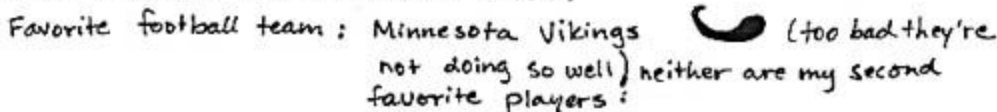 Favorite football team : Minnesota Vikings (too bad they're
not doing so well) neither are my second
favorite players :